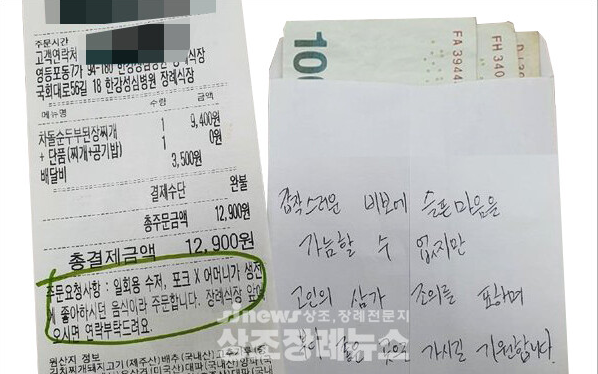 주문시간
고객연락처
영등포동7가 94-180 한강성심병원 장례식장
국회대로56길 18 한강성심병원 장례식장
메뉴명 수량 금액
차돌순두부된장찌개 1 9,400원
+ 단품(찌개+공기밥) 1 0원
배달비 3,500원
결제수단 완불
총주문금액 12,900원
총결제금액 12,900원
주문요청사항 : 일회용 수저, 포크 X 어머니가 생전
에 좋아하시던 음식이라 주문합니다. 장례식장 앞에
오시면 연락부탁드려요.
원산지 정보
김치찌개돼지고기(제주산)배추(국내산)
100
FA 3944
FH 340
갑작스러운 비보에 슬픈마음을
가늠할 수 없지만
고인의 삼가 조의를 표하며
부디 좋은 곳으로 가시길 기원합니다.
sjnews 상조, 장례전문지
상조장례뉴스